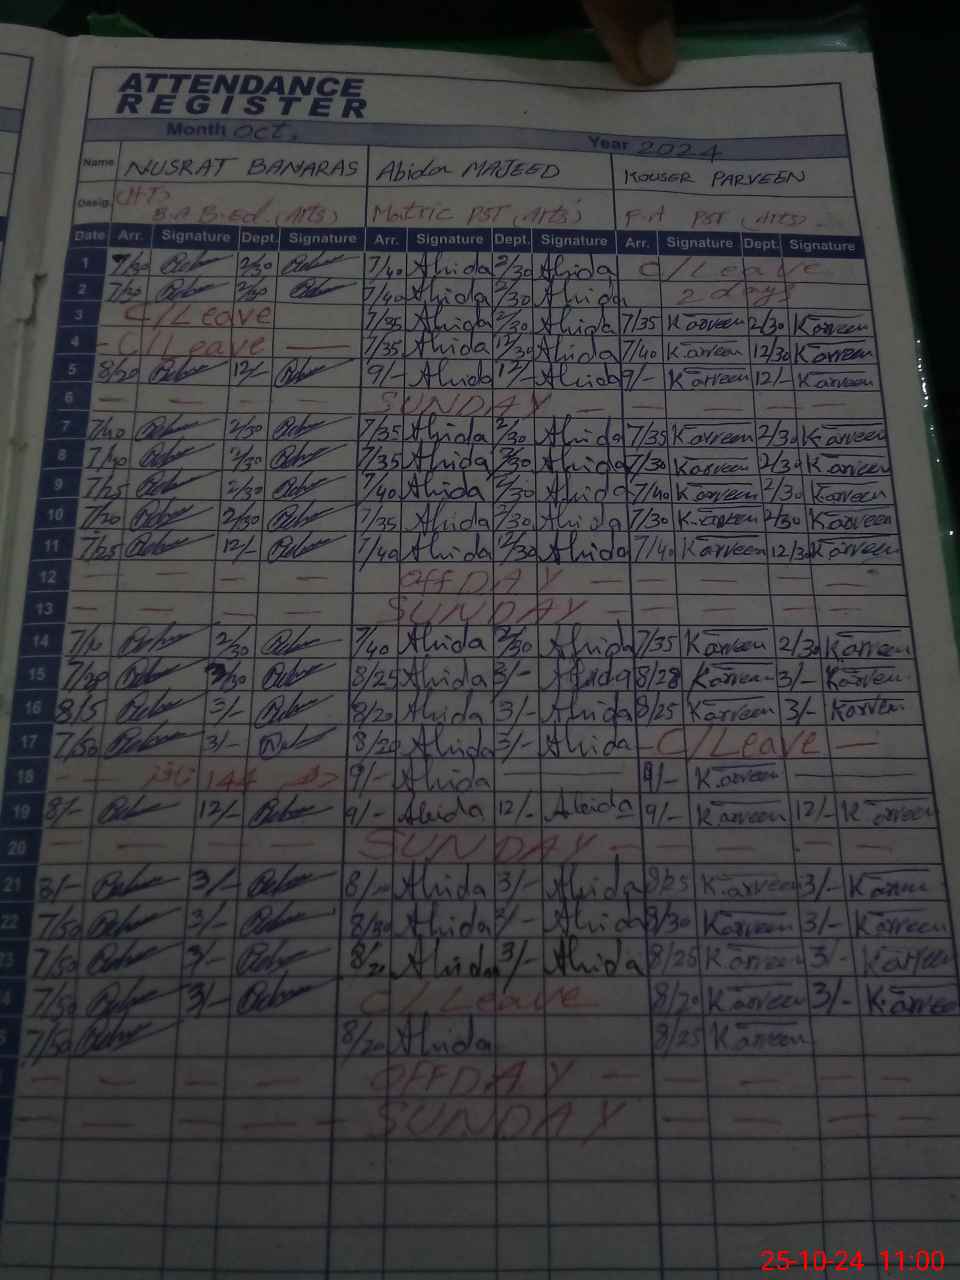 ATTENDANCE
REGISTER
Month Oct. Year 2024
Name NUSRAT BANARAS Abida MAJEED KOUSER PARVEEN
Desig. (HT) B.A B.Ed. (Arts) Matric PST (Arts) F.A PST (Arts)
Date Arr. Signature Dept. Signature Arr. Signature Dept. Signature Arr. Signature Dept. Signature
1 7/30 2/30 7/40 Ahida 2/30 Ahida C/Leave
2 7/30 2/30 7/40 Ahida 2/30 Ahida 2 days
3 C/Leave 7/35 Ahida 2/30 Ahida 7/35 Karveen 2/30 Karveen
4 - C/Leave — 7/35 Ahida 12/30 Ahida 7/40 Karveen 12/30 Karveen
5 8/20 12/- 9/- Ahida 12/- Ahida 9/- Karveen 12/- Karveen
6 — — — — SUNDAY — — — — —
7 2/30 7/35 Ahida 2/30 Ahida 7/35 Karveen 2/30 Karveen
8 2/30 7/35 Ahida 2/30 Ahida 7/30 Karveen 2/30 Karveen
9 7/25 2/30 7/40 Ahida 2/30 Ahida 7/40 Karveen 2/30 Karveen
10 7/20 2/30 7/35 Ahida 2/30 Ahida 7/30 Karveen 2/30 Karveen
11 7/25 12/- 7/40 Ahida 12/30 Ahida 7/40 Karveen 12/30 Karveen
12 — — — — OFF DAY — — — — —
13 — — — — SUNDAY — — — — —
14 2/30 7/40 Ahida 2/30 Ahida 7/35 Karveen 2/30 Karveen
15 8/25 Ahida 3/- Ahida 8/28 Karveen 3/- Karveen
16 8/5 3/- 8/20 Ahida 3/- Ahida 8/25 Karveen 3/- Karveen
17 7/50 3/- 8/20 Ahida 3/- Ahida - C/Leave —
18 — — 144 9/- Ahida 9/- Karveen
19 8/- 12/- 9/- Ahida 12/- Ahida 9/- Karveen 12/- Karveen
20 — — — — SUNDAY — — — — —
21 8/- 3/- Ahida 3/- Ahida 8/25 Karveen 3/- Karveen
22 7/50 3/- 8/30 Ahida 3/- Ahida 8/30 Karveen 3/- Karveen
23 7/50 3/- 8/20 Ahida 3/- Ahida 8/25 Karveen 3/- Karveen
4 7/50 3/- C/Leave 8/20 Karveen 3/- Karveen
5 7/50 8/20 Ahida 8/25 Karveen
— — — — OFFDAY — — — — —
— — — — SUNDAY — — — — —
25-10-24 11:00